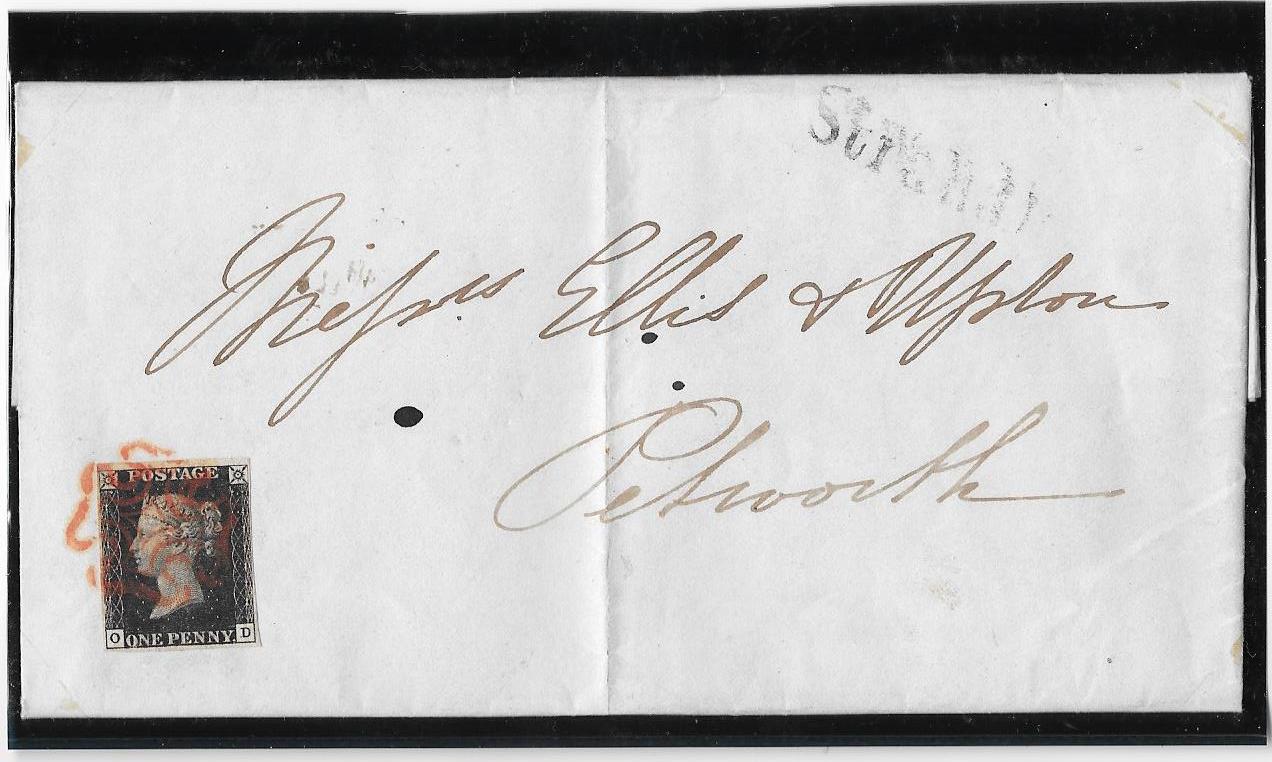 Messrs Ellis & Upton
Petworth
POSTAGE
O ONE PENNY. D